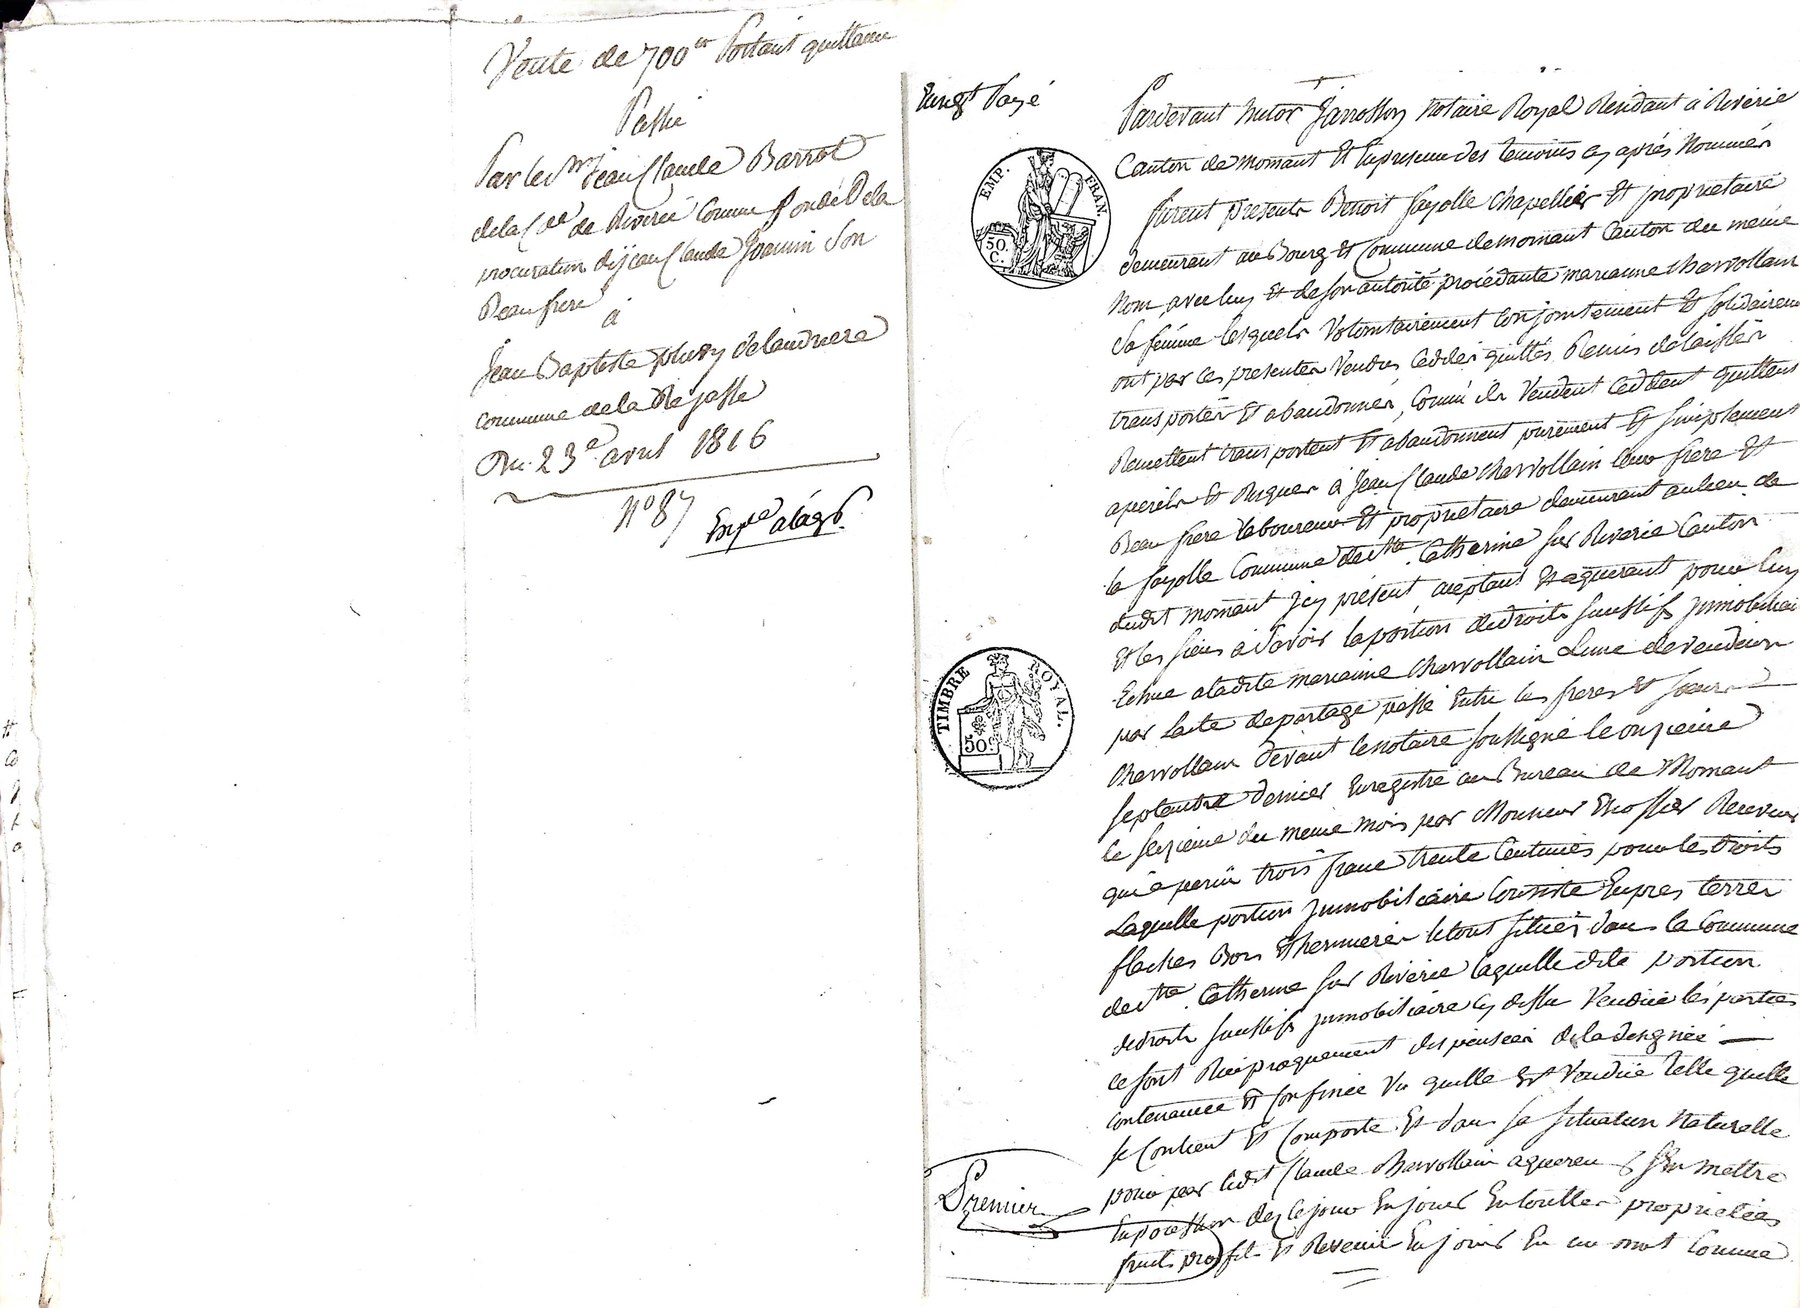 Vente de 700 er Portant quittance
Passé
Par le Sr Jean Claude Barrot
de la Cne de Riverie Comme fondé De la
procuration de jean Claude Joannin Son
Beau frere
à
Jean Baptiste
commune de la Rejasse
Du 23e avril 1816
N° 87
Expée
Enregt Payé
Pardevant Jarrosson Notaire Royal Residant à Riverie
Canton de mornant Et En presence des temoins cy après Nommés
furent presents Benoit fayolle Chapellier Et proprietaire
demeurant au Bourg Et Commune de mornant Canton du même
Nom, avec luy Et de son autorité procédante marianne Charvollain
Sa femme lesquels Volontairement Conjointement Et Solidairem
ont par ces presentes Vendus, Cedder, quittés, Remis delaisser
transporter Et abandonner, Comme ils Vendent Ceddent quittens
Remettent transportent Et abandonnent purement Et Simplement
aperils Et Risques à Jean Claude Charvollain leur frere Et
Beau frere laboureur Et proprietaire demeurant au lieu de
la fayolle Commune de Ste Catherine sur Riverie Canton
dudit mornant jcy présent acceptant Et aquerant pour luy
Et les siens à Savoir la portion de droits Sucessifs jmmobiliai
Echue a ladite marianne Charvollain Lune des vendeurs
par Lacte de partage passé Entre les freres Et soeurs
Charvollain devant le notaire soussigné le onzieme
septembre dernier Enregistré au Bureau de Mornant
le seizieme du meme mois par Monsieur Receveur
qui a perçu trois franc trente Centimes pour les droits
Laquelle portion jmmobiliaire Consiste En pres terres
flaches Bois Et hermieres le tout situés dans la Commune
de Ste Catherine sur Riverie laquelle dite portion
de droits Sucessifs jmmobiliaire cy dessu Vendue les parties
ce sont Reciproquement dispensées de la designée
contenance Et Confinée Vu quelle Est Vendue telle quelle
se Contient Et Comporte Et dans sa situation Naturelle
pour par ledit Claude Charvollain aquereur sen mettre
En possession dez ce jour En jouir En toutes proprietées
fruits profit Et Revenus En jouir En un mot Comme
EMP. FRAN.
50.
C.
TIMBRE ROYAL.
50C
Premier